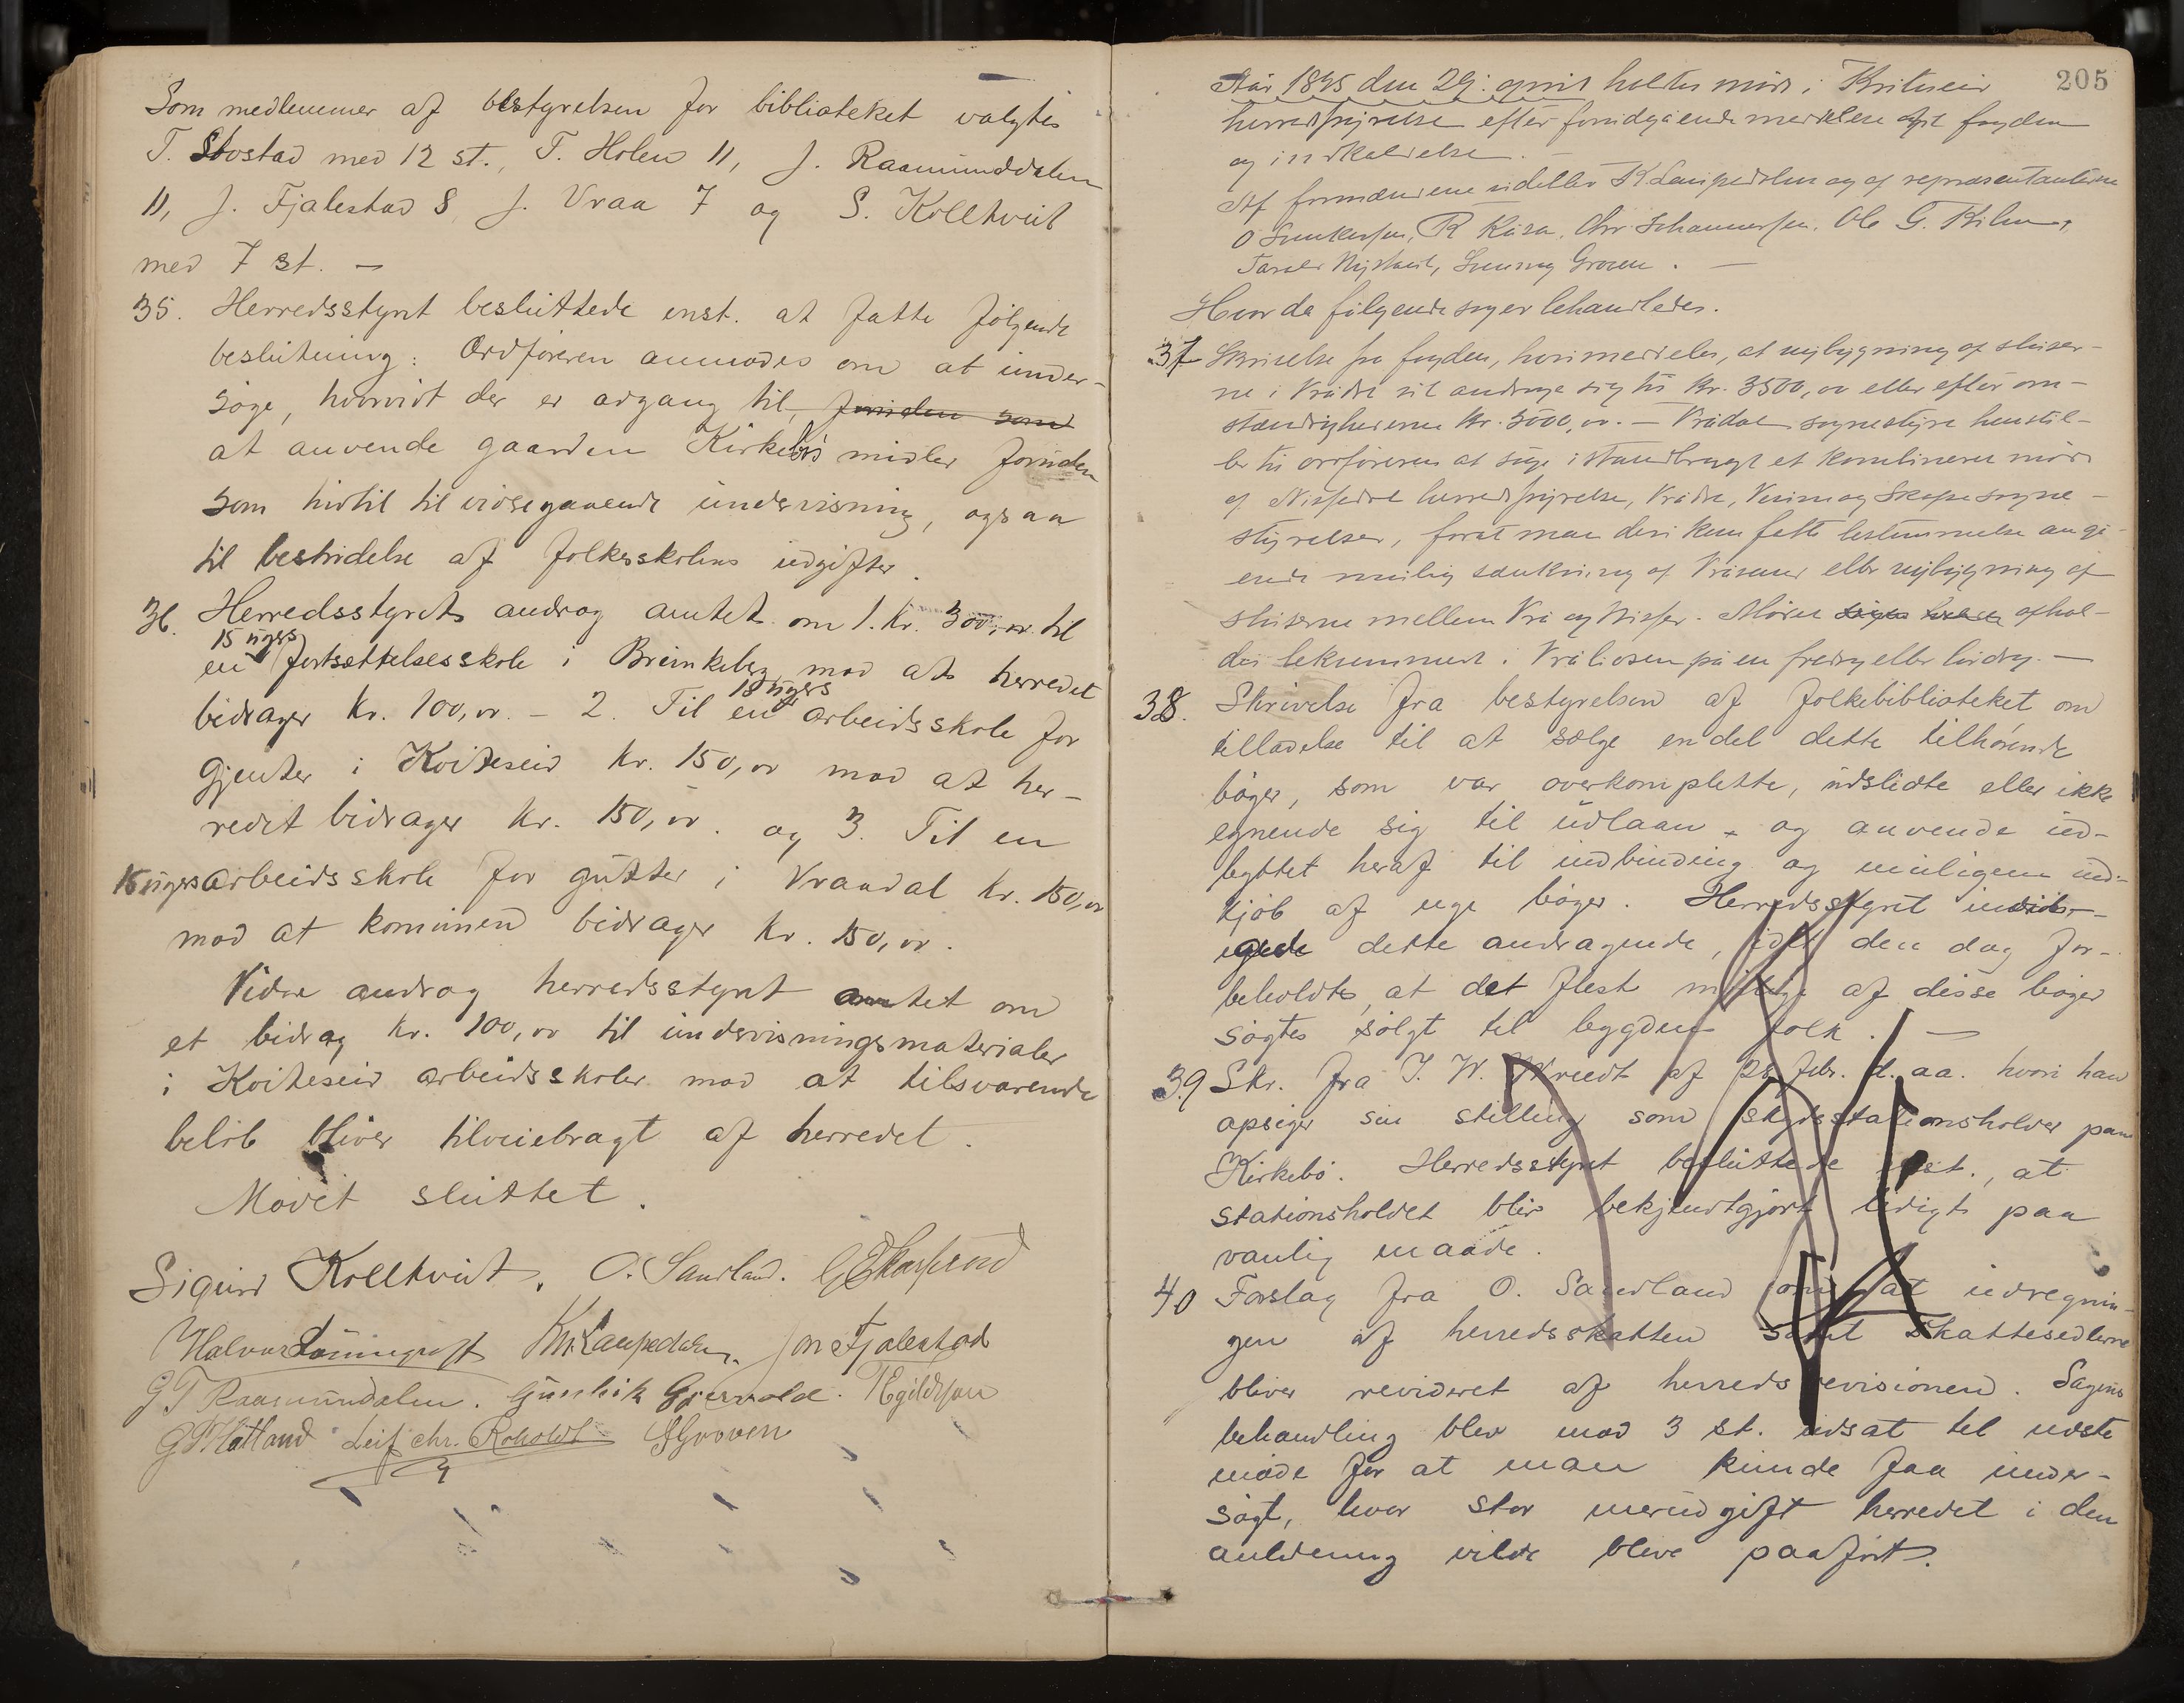 Som medlemmer af bestyrelsen for biblioteket valgtes
T. Stostad med 12 st., T. Holen 11, J. Raamunddalen
11, J. Fjalestad 8, J. Vraa 7 og S. Kolltveit
med 7 st. —
35. Herredsstyret besluttede enst. at fatte følgende
beslutning: Ordføreren anmodes om at under-
søge, hvorvidt der er adgang til,
at anvende gaarden Kirkebø's midler foruden
som hidtil til videregaaende undervisning, ogsaa
til bestridelse af folkeskolens udgifter.
36. Herredsstyret androg amtet om 1. Kr. 300,00 til
en 15 ugers fortsættelsesskole i Brunkeberg mod at herredet
bidrager Kr. 100,00. – 2. Til en ugers arbeidsskole for
gjenter i Kviteseid Kr. 150,00 mod at her-
redet bidrager Kr. 150,00. og 3. Til en
15 ugers arbeidsskole for gutter i Vraadal Kr. 150,00
mod at komunen bidrager Kr. 150,00.
Videre androg herredsstyret amtet om
et bidrag Kr. 100,00 til undervisningsmaterialer
i Kviteseid arbeidsskoler mod at tilsvarende
beløb bliver tilveiebragt af herredet.
Mødet sluttet.
Sigurd Kolltveit. O. Sandland.
Halvor Jon Fjalestad
G T Raamunddalen. Gunleik
Leif Chr. Roholdt S Groven
205
Aar 1895 den 29. april holdtes møde i Kviteseid
herredsstyrelse efter forudgående meddelelse til fogden
og indkaldelse. —
Af formændene og af repræsentanterne
O R Kåsa, Chr Ole G.
Groven. —
Hvor da følgende sager behandledes.
37 Skrivelse fra fogden, hvori meddeles, at nybygning af sluser-
ne i Vrådal vil andrage sig til Kr. 3500,00 eller efter om-
stændighederne Kr. 5000,00. — Vrådal sognestyre henstil-
ler til ordføreren at søge istandbragt et kombineret møde
af Nissedal herredsstyrelse, Vrådal, og sogne-
styrelser, forat man deri kan fatte bestemmelse angå-
ende mulig sænkning af eller nybygning af
sluserne mellem Vrå og Nisser. Mødet afhol-
des i Vråliosen på en fredag eller lørdag. —
38. Skrivelse fra bestyrelsen af folkebiblioteket om
tilladelse til at sælge en del dette tilhørende
bøger, som var overkomplette, udslidte eller ikke
egnende sig til udlaan og anvende ud-
byttet heraf til indbinding og muligens ind-
kjøb af nye bøger. Herredsstyret indvil-
gede dette andragende, idet den dog for-
beholdte, at det flest mulige af disse bøger
søgtes solgt til bygdens folk. —
39 Skr. fra J. W. af 28 febr. d. aa. hvori han
opsiger sin stilling som skydsstationsholder paa
Kirkebø. Herredsstyret besluttede enst., at
stationsholdet blir bekjendtgjort ledigt paa
vanlig maade.
40 Forslag fra O. Sandland om at udregnin-
gen af herredsskatten samt skattesedlerne
bliver revideret af herredsrevisionen. Sagens
behandling blev mod 3 st. udsat til næste
møde for at man kunde faa under-
søgt, hvor stor merudgift herredet i den
anledning vilde blive paaført.